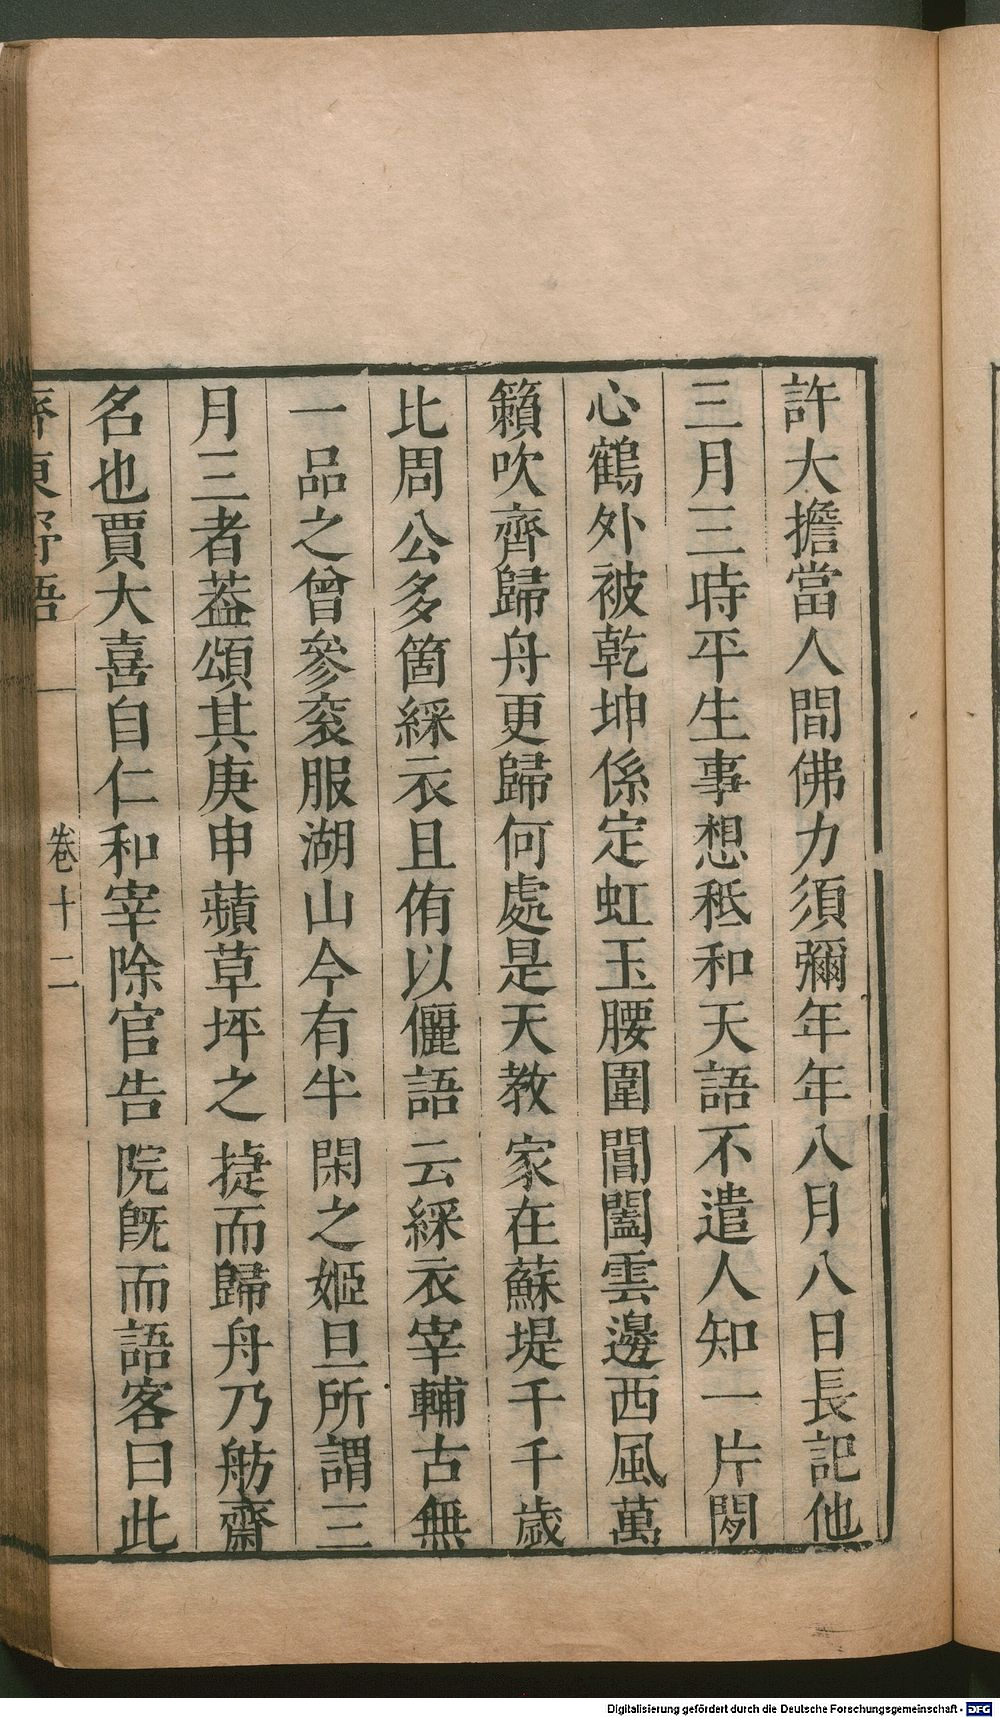 許大擔當人間佛力須彌年年八月八日長記他
三月三時平生事想秪和天語不遣人知一片閒
心鶴外被乾坤係定虹玉腰圍閶闔雲邊西風萬
籟吹齊歸舟更歸何處是天教家在蘇堤千千歲
比周公多箇綵衣且侑以儷語云綵衣宰輔古無
一品之曾參衮服湖山今有半閑之姬旦所謂三
月三者葢頌其庚申蘋草坪之捷而歸舟乃舫齋
名也賈大喜自仁和宰除官告院旣而語客曰此
齊東野語
卷十二
Digitalisierung gefördert durch die Deutsche Forschungsgemeinschaft - DFG